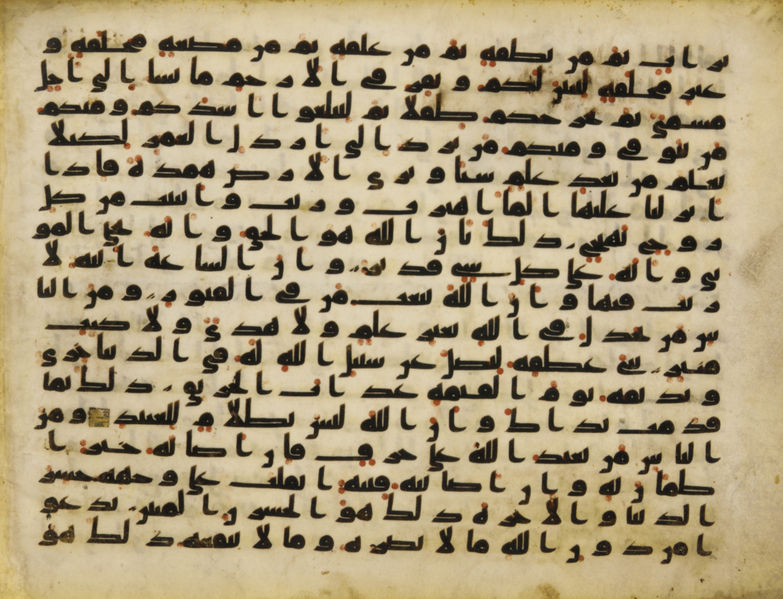 تراب ثم من نطفة ثم من علقة ثم من مضغة مخلقة و
غير مخلقة لنبين لكم و نقر في الارحام ما نشا الى اجل
مسمى ثم نخرجكم طفلا ثم لتبلغوا اشدكم و منكم
من يتوفى و منكم من يرد الى ارذل العمر لكيلا
يعلم من بعد علم شيا و ترى الارض همدة فاذا
انزلنا عليها الما اهتزت و ربت و انبتت من كل
زوج بهيج ذلك بان الله هو الحق و انه يحى المو
تى و انه على كل شى قدير و ان الساعة اتية لا
ريب فيها و ان الله يبعث من في القبور و من النا
س من يجدل في الله بغير علم و لا هدى و لا كتب
منير ثنى عطفه ليضل عن سبيل الله له في الدنيا خزى
و نذيقه يوم القيمة عذاب الحريق ذلك بما
قدمت يداك و ان الله ليس بظلام للعبيد و من
الناس من يعبد الله على حرف فان اصابه خير ا
طمان به و ان اصابته فتنة انقلب على وجهه خسر
الدنيا و الاخرة ذلك هو الخسرن المبين يدعو
ا من دون الله ما لا يضره و ما لا ينفعه ذلك هو